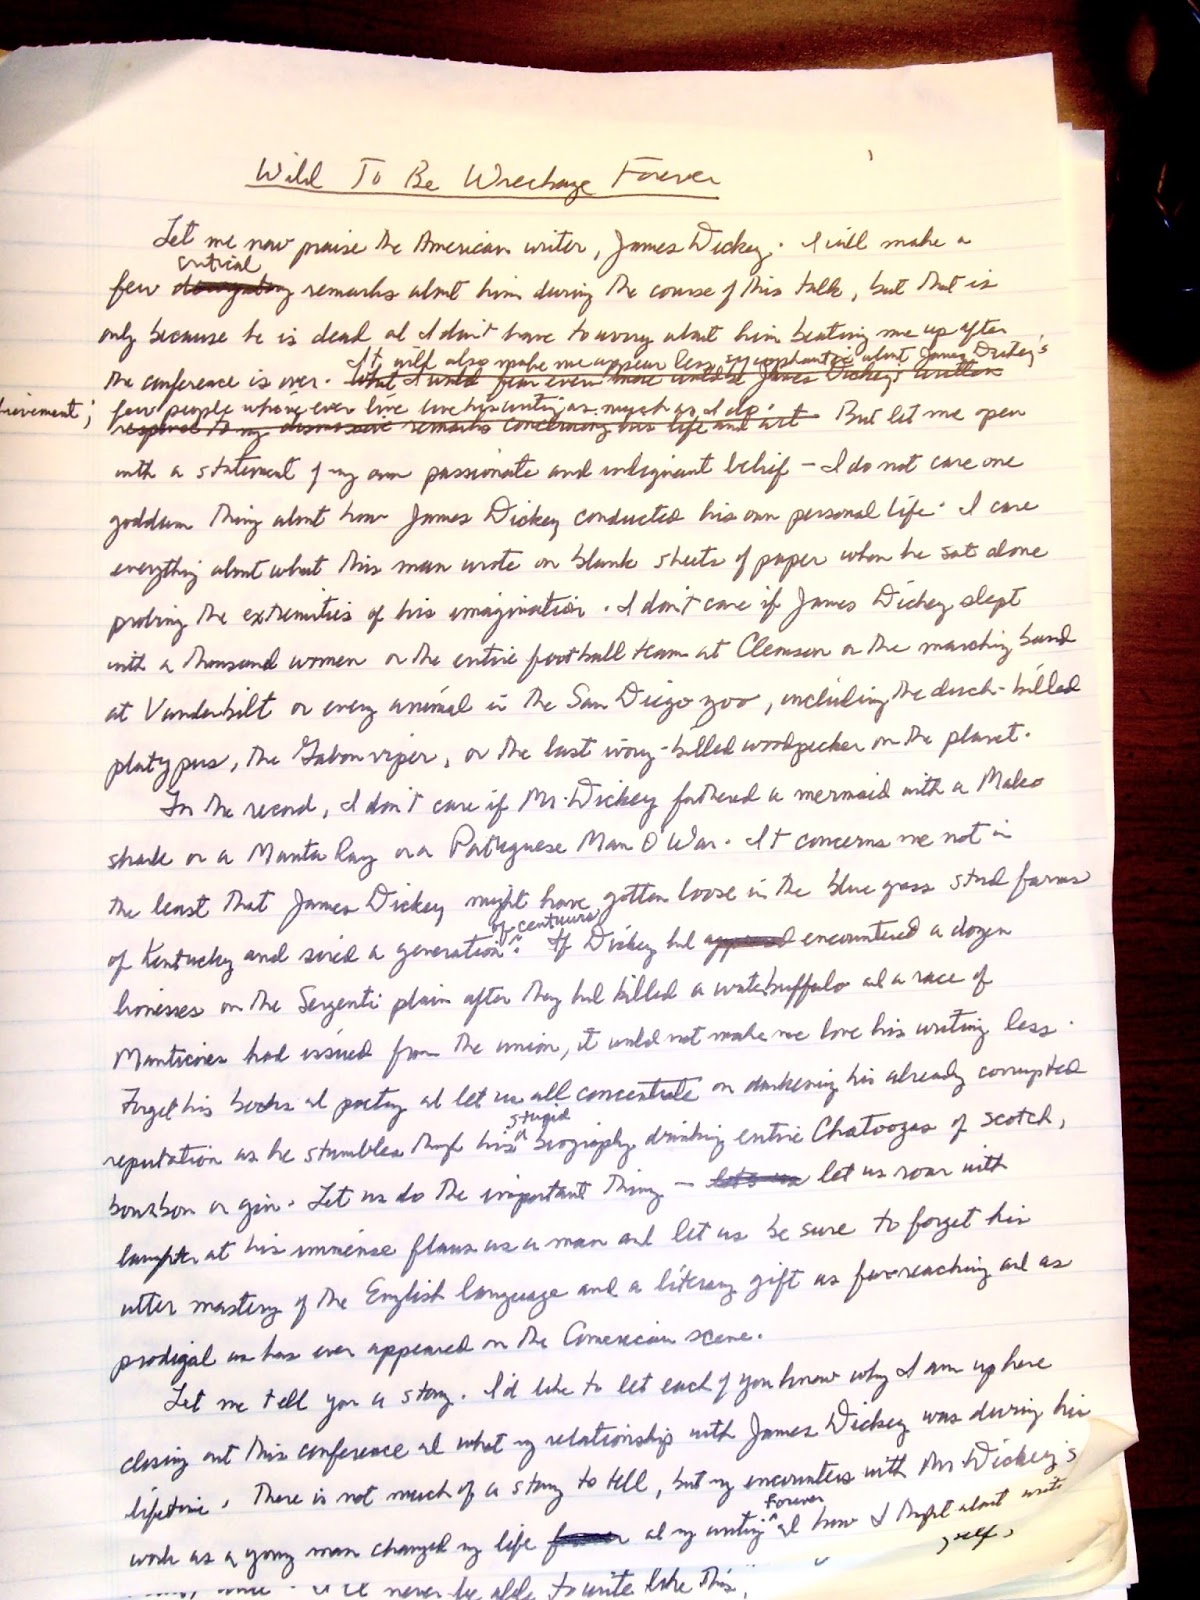 Wild To Be Wreckage Forever
Let me now praise the American writer, James Dickey. I will make a
critical
few remarks about him during the course of this talk, but that is
only because he is dead and I don't have to worry about him beating me up after
It will also make me appear less sycophantic about James Dickey's
the conference is over. What I would fear even more would be James Dickey's written
achievement; few people who've ever live love his writing as much as I do.
response to my dismissive remarks concerning his life and art But let me open
with a statement of my own passionate and indignant belief – I do not care one
goddamn thing about how James Dickey conducted his own personal life. I care
everything about what this man wrote on blank sheets of paper when he sat alone
probing the extremities of his imagination. I don't care if James Dickey slept
with a thousand women or the entire football team at Clemson or the marching band
at Vanderbilt or every animal in the San Diego zoo, including the duck-billed
platypus, the Gabon viper, or the last ivory-billed woodpecker on the planet.
For the record, I don't care if Mr. Dickey fathered a mermaid with a Mako
shark or a Manta Ray or a Portuguese Man O War. It concerns me not in
the least that James Dickey might have gotten loose in the blue grass stud farms
of centaurs
of Kentucky and sired a generation. If Dickey had encountered a dozen
lionesses on the Sergenti plain after they had killed a waterbuffalo and a race of
Manticores had issued from the union, it would not make me love his writing less.
Forget his books and poetry and let us all concentrate on darkening his already corrupted
stupid
reputation as he stumbles through his biography drinking entire Chatoogas of scotch,
bourbon or gin. Let us do the important thing – let's us let us roar with
laughter at his immense flaws as a man and let us be sure to forget his
utter mastery of the English language and a literary gift as far-reaching and as
prodigal as has ever appeared on the American scene.
Let me tell you a story. I'd like to let each of you know why I am up here
closing out this conference and what my relationship with James Dickey was during his
lifetime. There is not much of a story to tell, but my encounters with Mr. Dickey's
Forever
work as a young man changed my life and my writing and how I thought about
self,
never be able to write like this,